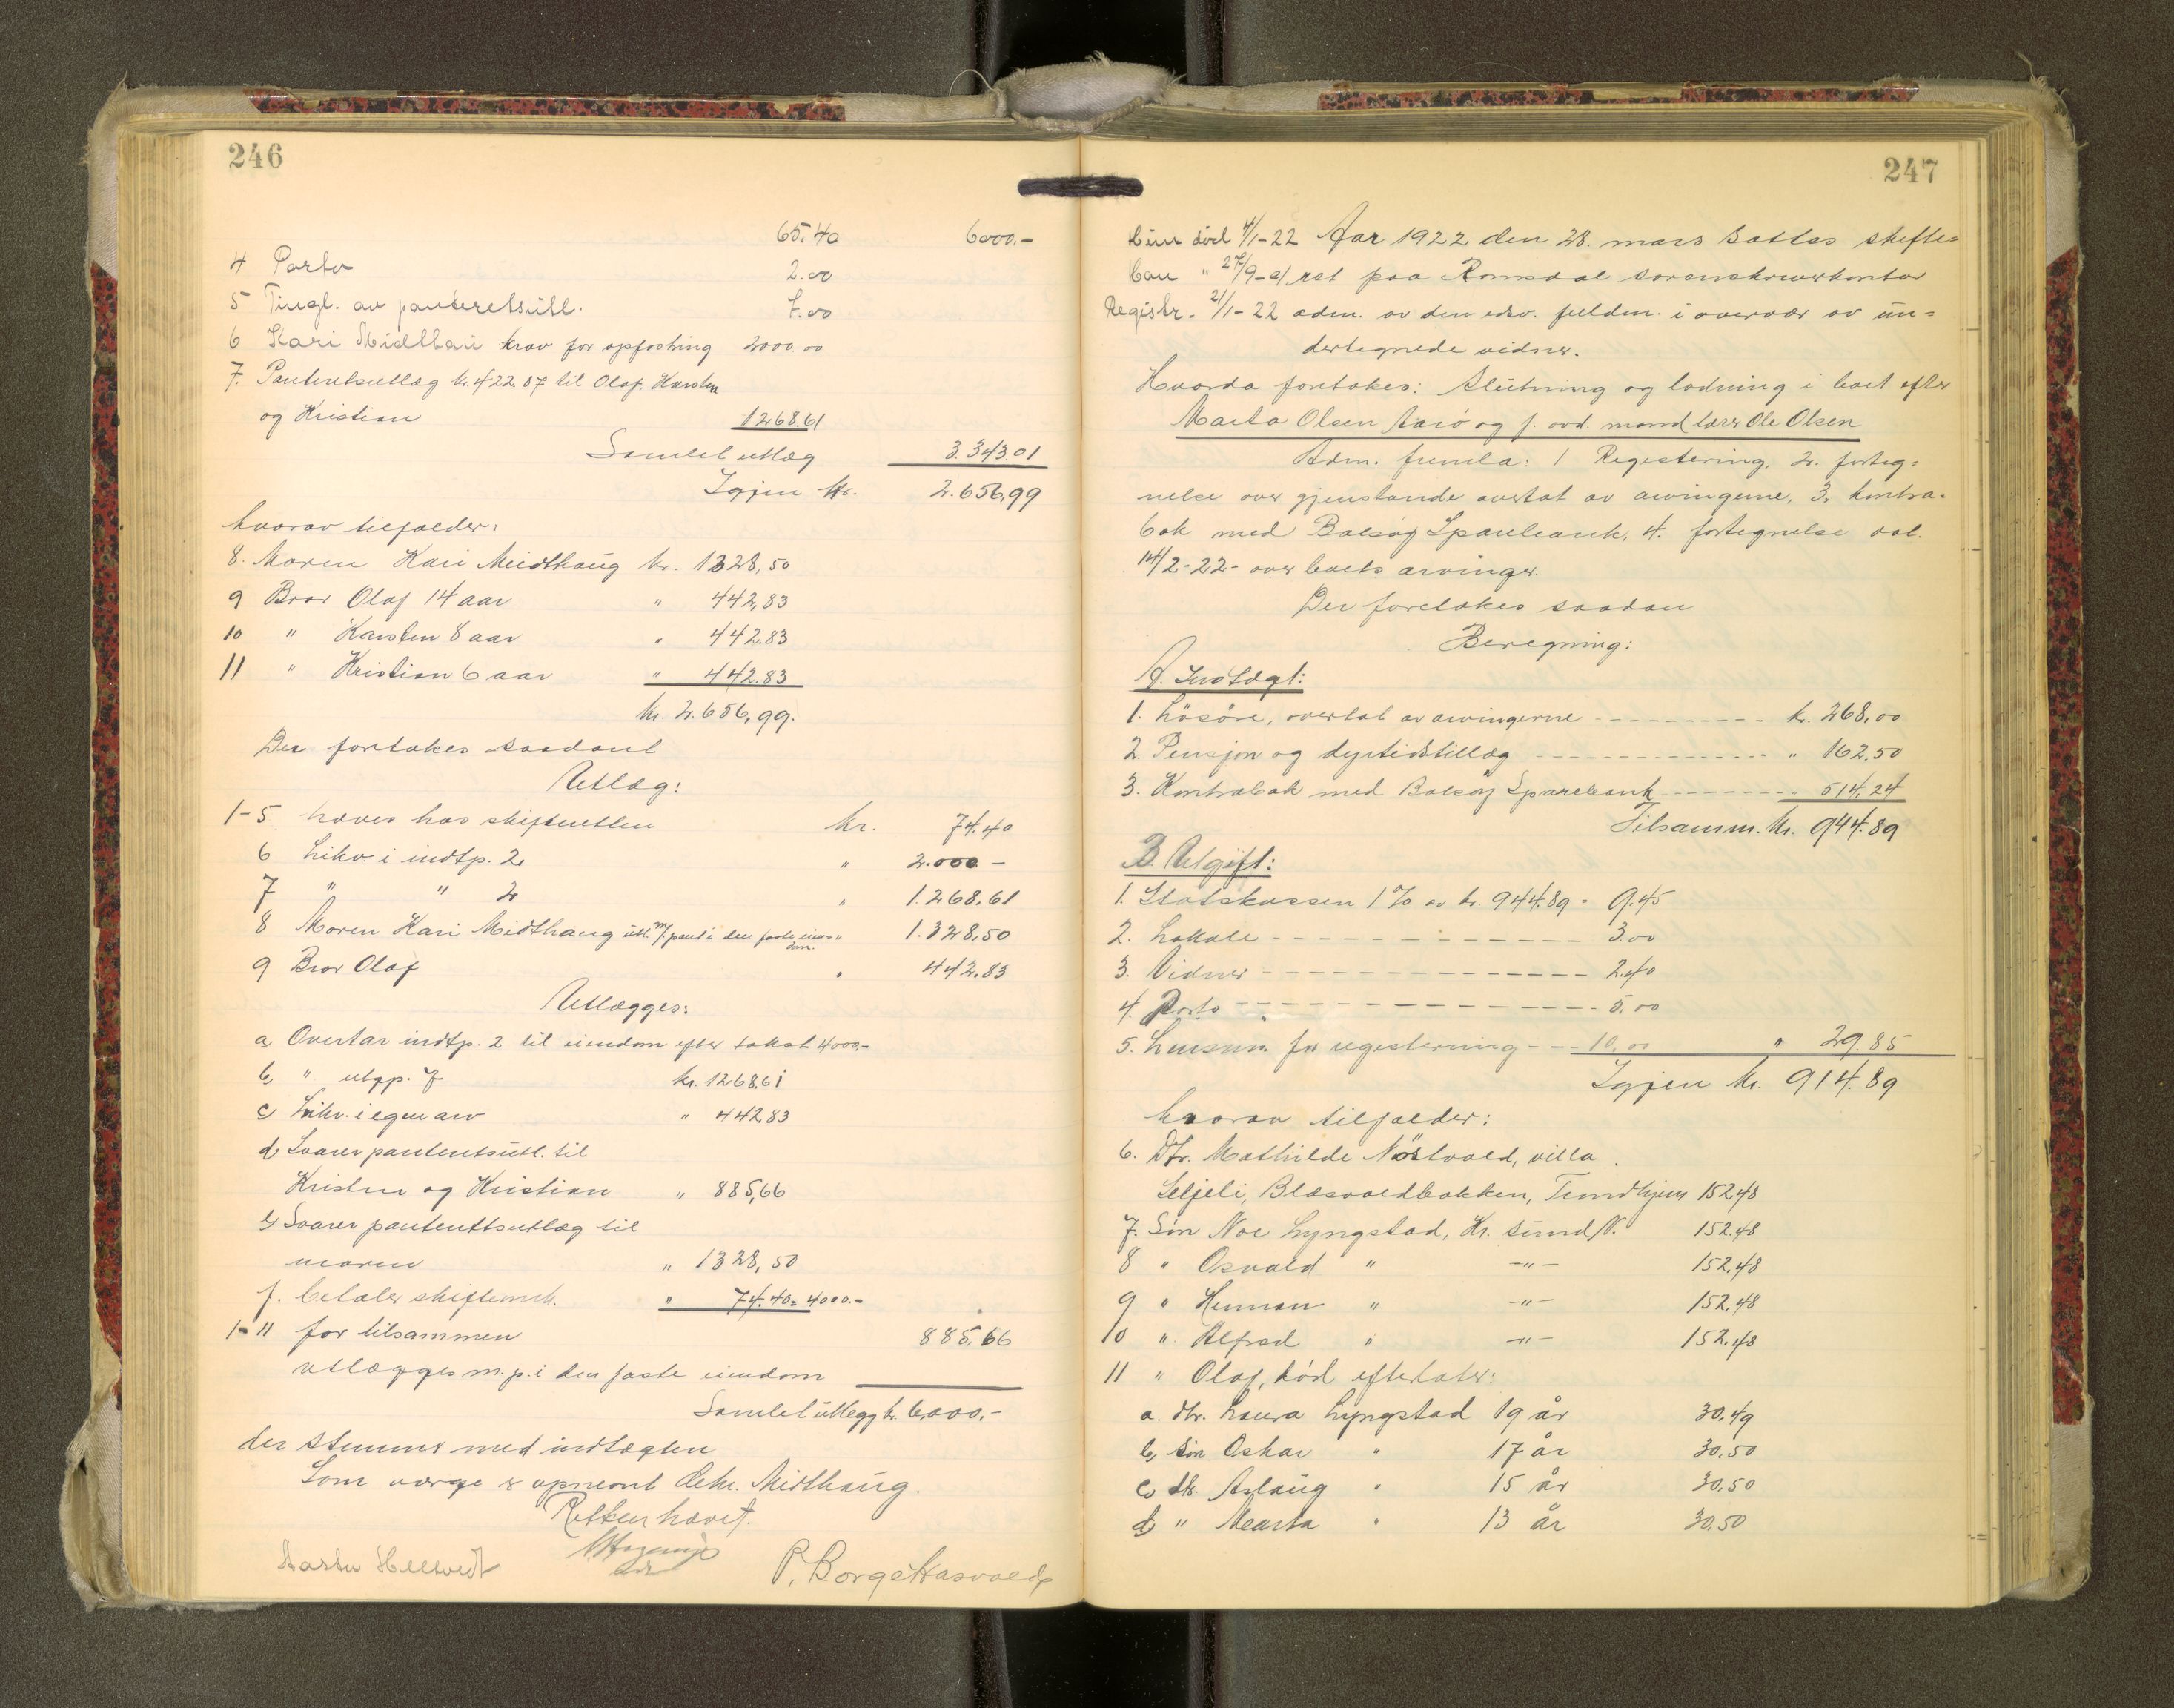 246
65.40 6000.-
4 Porto 2.00
5 Tingl. av panteretsutl. 7.00
6 Kari Midthau krav for opfostring 2000.00
7. Panteretsutlæg kr. 422.87 til Olaf, Karsten
og Kristian 1268.61
Samlet utlæg 3.343.01
Igjen kr. 2.656,99
hvorav tilfalder:
8. Moren Kari Meidthaug kr. 1328,50
9 Bror Olaf 14 aar " 442,83
10 " Karsten 8 aar " 442.83
11 " Kristian 6 aar " 442.83
kr. 2.656,99.
Der foretakes saadant
Utlæg:
1-5 haves hos skifteretten kr. 74.40
6 Likv. i indtp. 2. " 2.000 -
7 " " 2 " 1.268.61
8 Moren Kari Midthaug utl. m/ pant i den faste eien- " 1.328,50
dom.
9 Bror Olaf " 442.83
Utlægges:
a Overtar indtp. 2 til eiendom efter takst 4000,-
b, " utgp. 7 kr. 1268.61
c) Likv. i egen arv " 442,83
d, Svarer panteretsutl. til
Kristen og Kristian " 885,66
e, Svarer panteretsutlæg til
moren " 1328,50
f. betaler skifteomk. " 74.40 = 4000.-
1-11 for tilsammen 885,66
utlægges m. p. i den faste eiendom
Samlet utlegg kr. 6000.-
der stemmer med indtægten
Som værge er opnevnt Midthaug.
Retten hævet.
P. Borge Hasvold
247
Hun død 4/1-22 Aar 1922 den 28. mars sattes skifte-
Han " 27/9-01 ret paa Romsdal sorenskriverkontor
Registr. 21/1-22 adm. av den edsv. fuldm. i overvær av un-
dertegnede vidner.
Hvorda foretokes: Slutning og lodning i boet efter
Marta Olsen Aarö og f. avd. mand lærer Ole Olsen
Adm. fremla: 1 Registering, 2. forteg-
nelse over gjenstande overtat av arvingerne, 3. kontra-
bok med Bolsøy Sparebank, 4. fortegnelse dat.
14/2-22- over boets arvinger.
Der foretokes saadan
Beregning:
A. Indtægt:
1. Løsøre, overtat av arvingerne kr. 268,00
2. Pensjon og dyrtidstillæg " 162.50
3. Kontrabok med Bolsøy Sparebank 514,24
Tilsamm. kr. 944.89
B. Utgift:
1. Statskassen 1% av kr. 944.89 - 9.45
2. Lokale 3.00
3. Vidner 2.40
4. Porto 5.00
5. Lensm. for registering 10.00 " 29.85
Igjen kr. 914.89
hvorav tilfalder:
6. Dtr. Mathilde Nöstvold, villa
Seljeli, Blæsvoldbakken, Trondhjem 152,48
7. Søn Noe Lyngstad, Kr. sund N. 152.48
8 " Osvald " -"- 152,48
9 " Herman " -"- 152,48
10 " Alfred " -"- 152,48
11 " Olaf, død efterlater:
a. dtr. Laura Lyngstad 19 år 30.49
b, søn Oskar " 17 år 30.50
c, dtr. Aslaug " 15 år 30.50
d, " Marta " 13 år 30,50